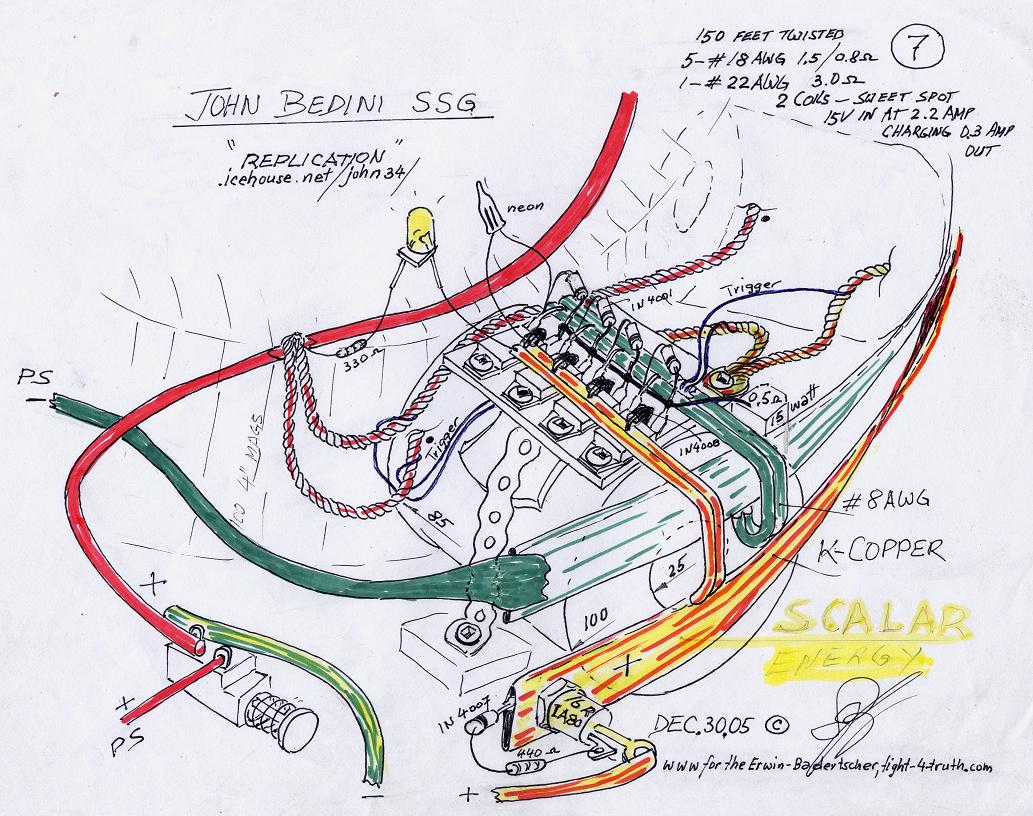 150 FEET TWISTED
5-#18 AWG 1.5/0.8Ω
1-#22 AWG 3.0Ω
2 COILS - SWEET SPOT
15V IN AT 2.2 AMP
CHARGING 0.3 AMP
OUT
7
JOHN BEDINI SSG
"REPLICATION"
.icehouse.net/john34/
neon
330Ω
1N4001
Trigger
PS
-
0.5Ω
15 watt
Trigger
1N4008
100 4" MAGS
85
#8AWG
K-COPPER
25
100
+
SCALAR
ENERGY
+
+
PS
-
1N4007
440Ω
+
DEC.30,05 ©
www for the Erwin-Badertscher, fight-4-truth.com